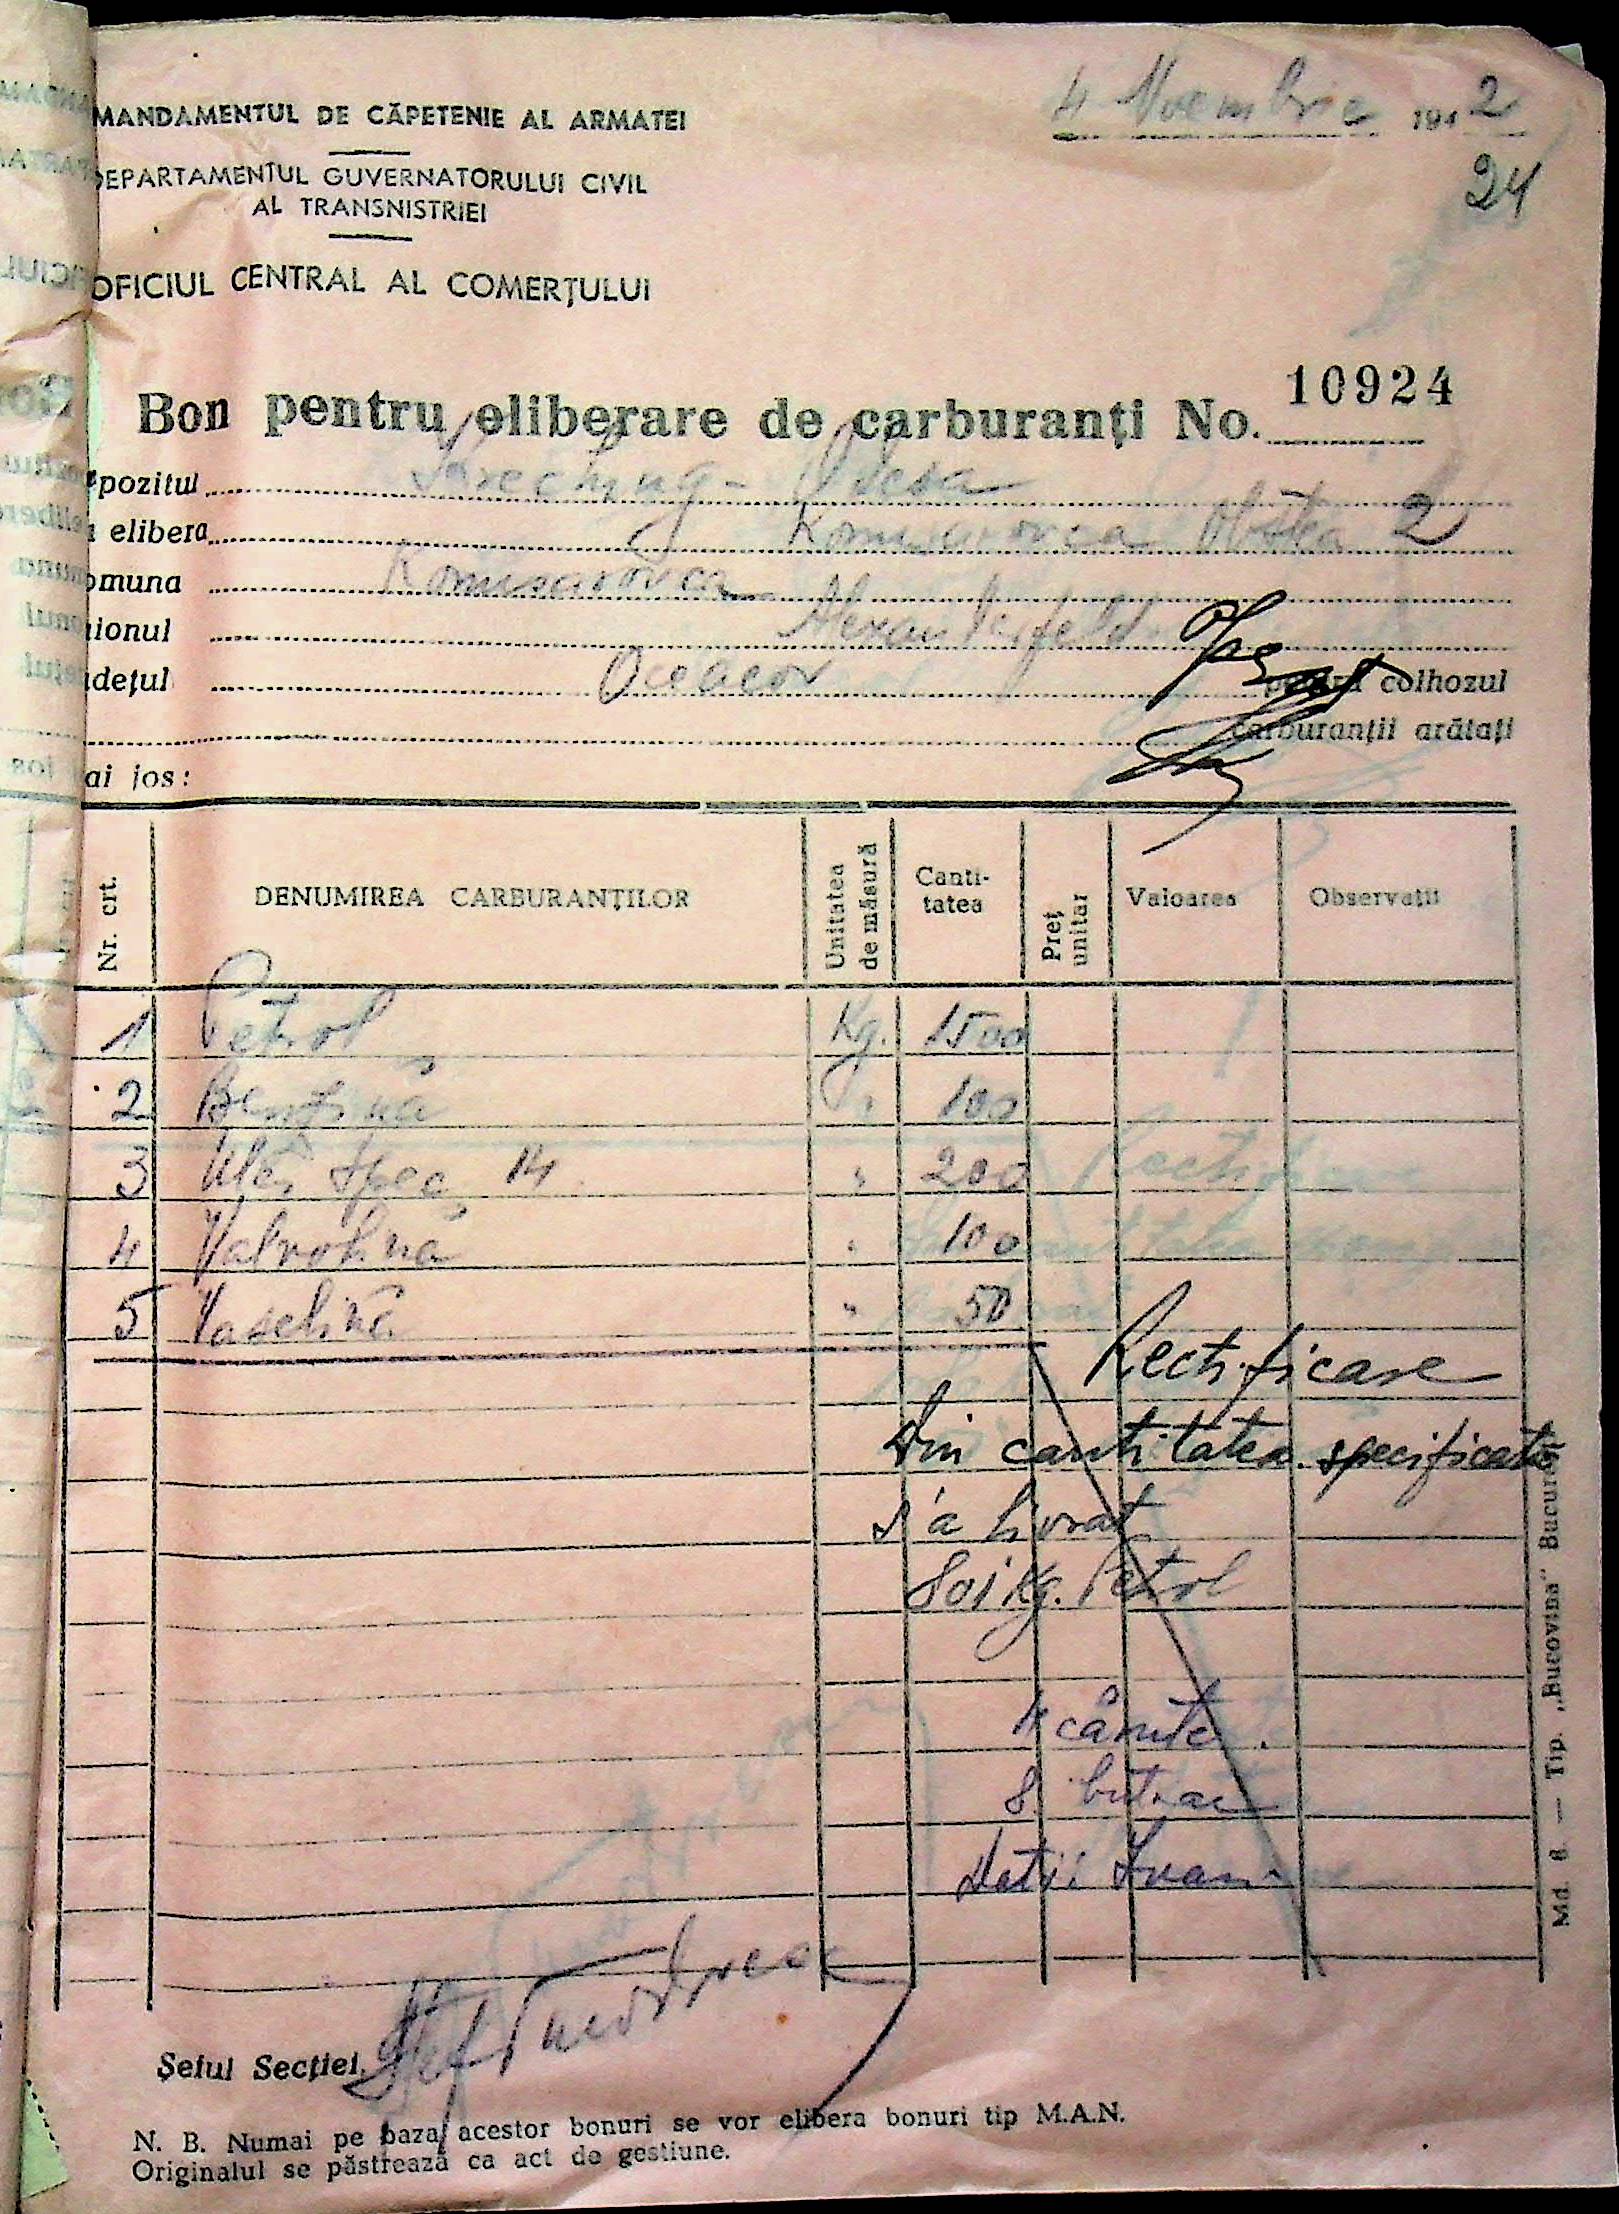 MANDAMENTUL DE CĂPETENIE AL ARMATEI
4 Noembrie 1942
DEPARTAMENTUL GUVERNATORULUI CIVIL
AL TRANSNISTRIEI
24
OFICIUL CENTRAL AL COMERŢULUI
Bon pentru eliberare de carburanţi No. 10924
pozitul Odesa
elibera Komisarovca Obştea 2
omuna Komisarovca
ionul Alexanderfeld
deţul Oceacov pentru colhozul
carburanţii arătaţi
ai jos:
Nr. crt. DENUMIREA CARBURANŢILOR Unitatea de măsură Canti-tatea Preţ unitar Valoarea Observaţii
1 Petrol Kg. 1500
2 Benzină " 100
3 Ulei spec 14 " 200
4 Valvolină " 100
5 Vaselină " 50
Rectificare
Din cantitatea specificată
s'a livrat
801 Kg. Petrol
4 cărute
8
Ivan
Şeful Secţiei,
N. B. Numai pe baza acestor bonuri se vor elibera bonuri tip M.A.N.
Originalul se păstrează ca act de gestiune.
Md. 6. — Tip. „Bucovina" Bucureşti